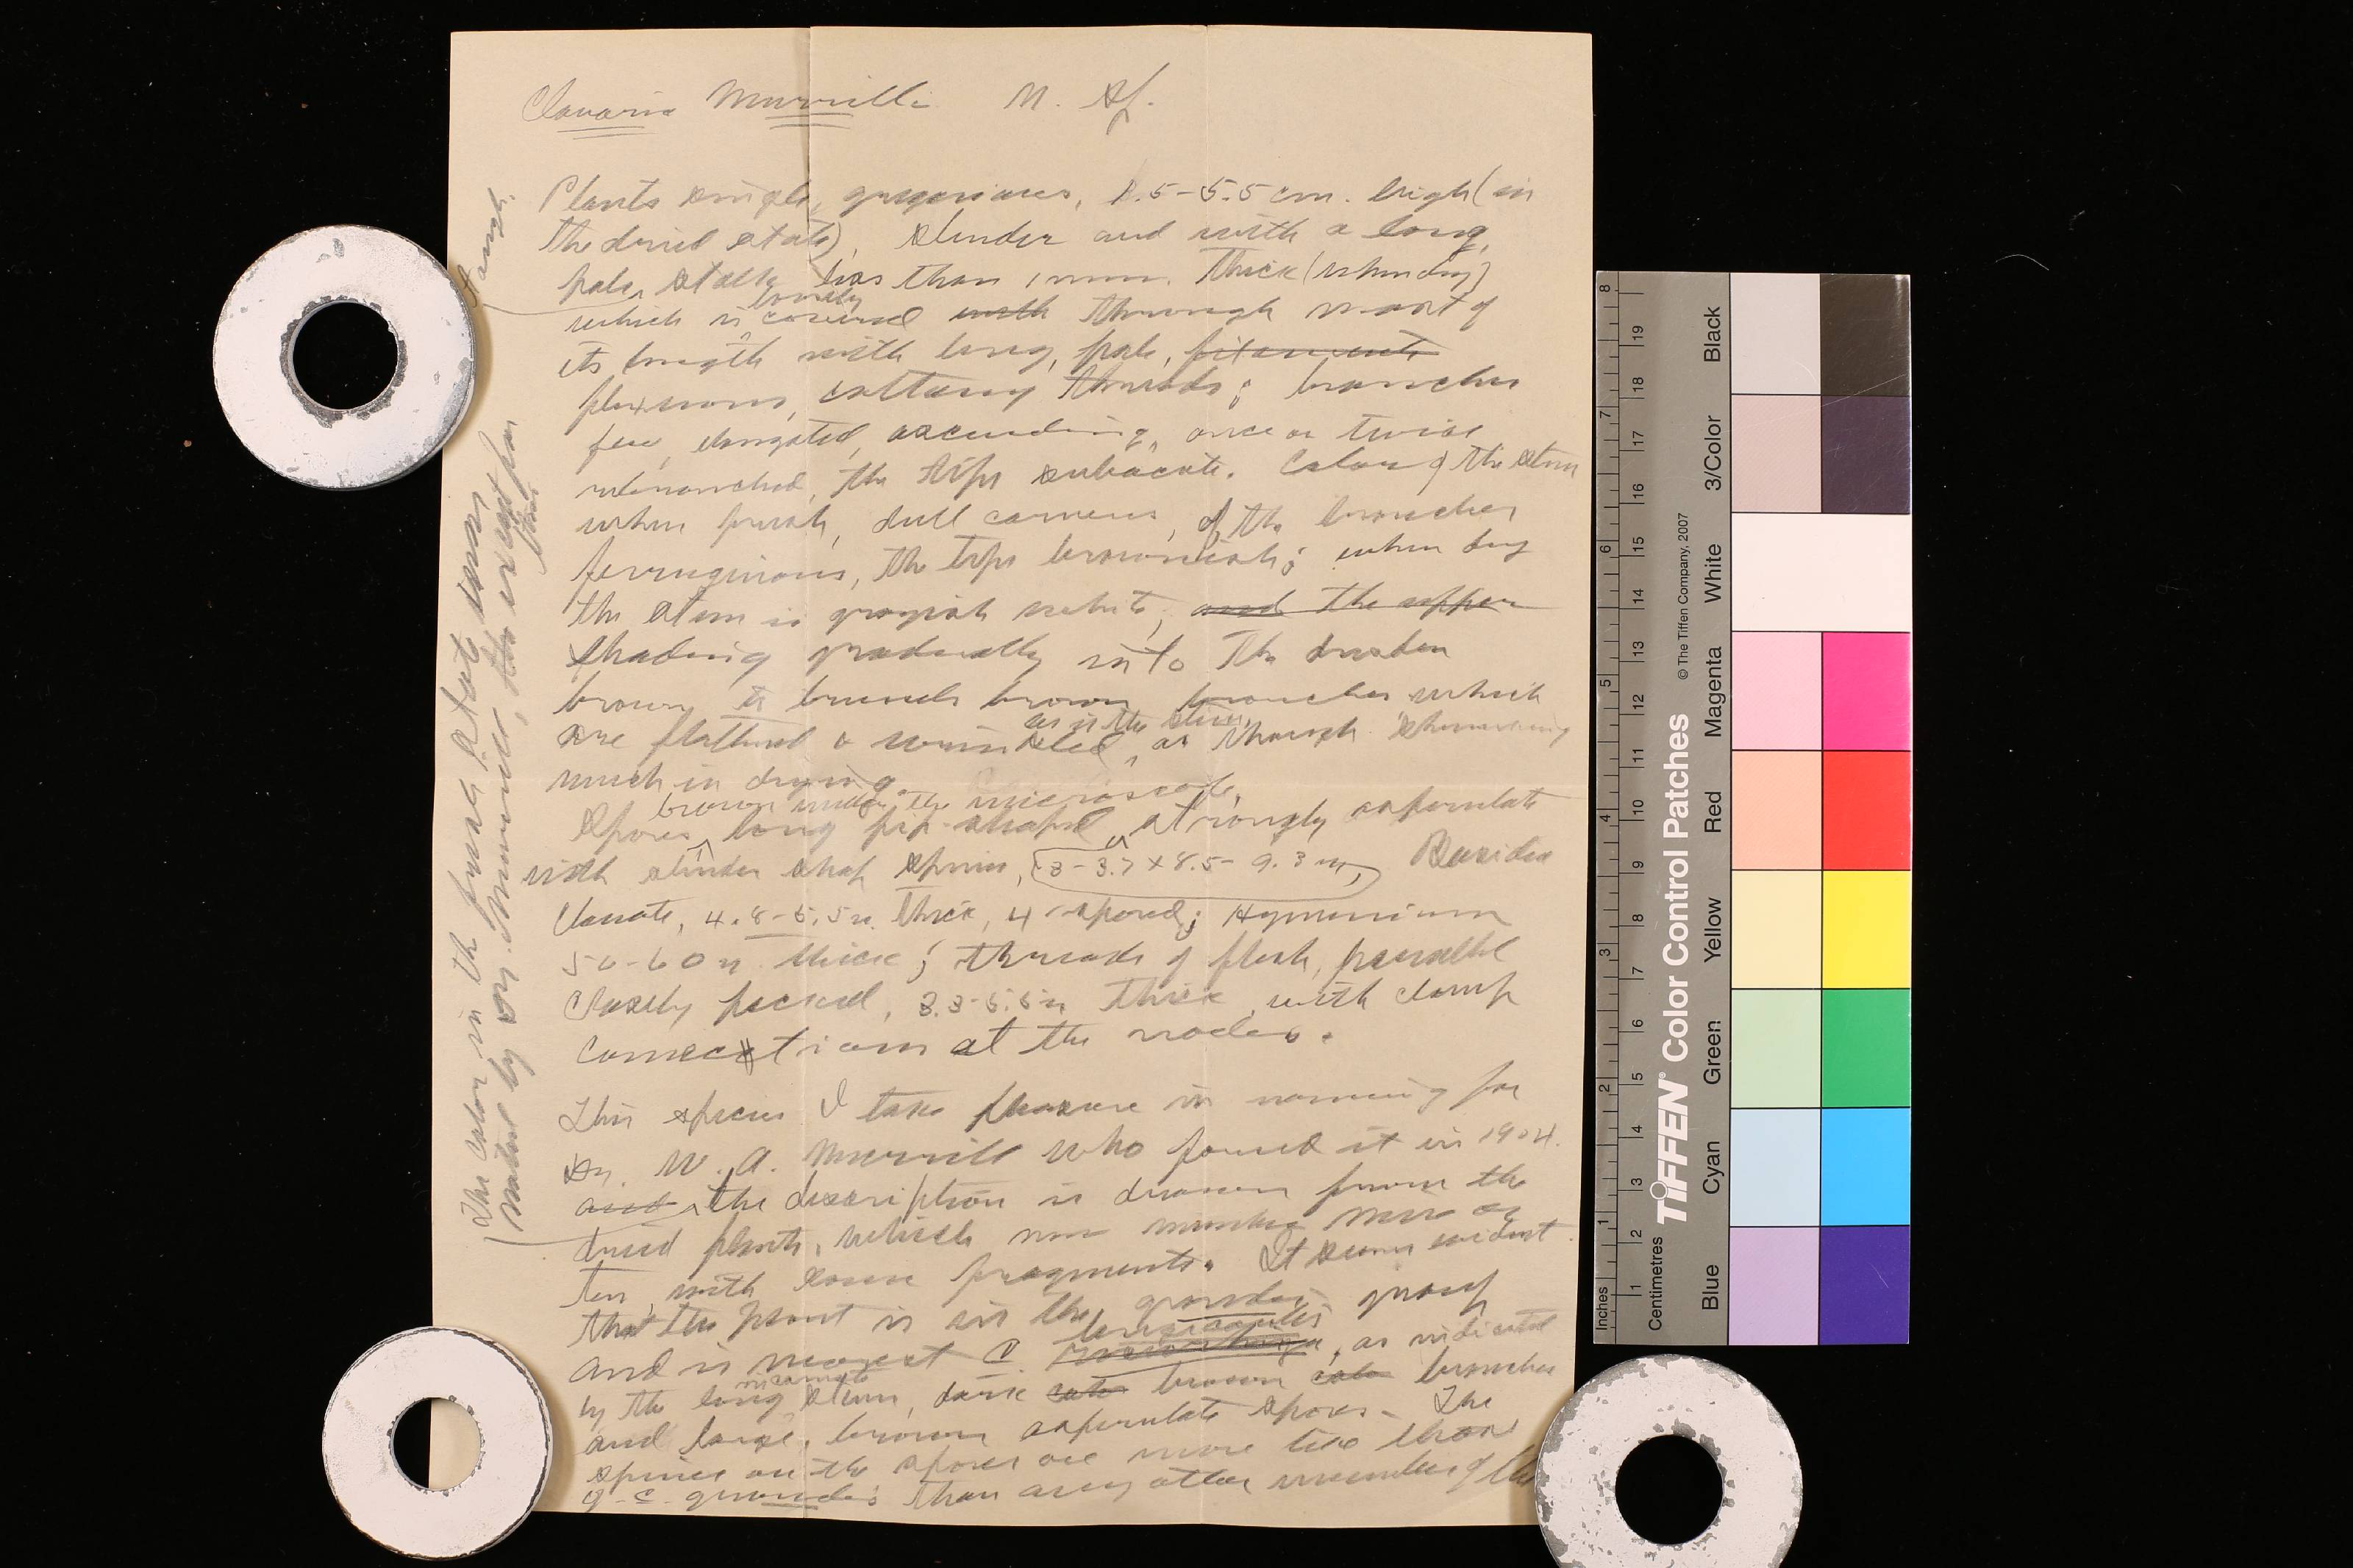 Clavaria Murrilli n. sp.
Plants single, gregarious, 1.5-5.5 cm. high (in
the dried state), slender and with a long,
pale stalk less than 1 mm. thick (when dry)
which is loosely covered with through most of
its length with long, pale, filaments
flexuous, cottony threads; branches
few, elongated, ascending, once or twice
rebranched, the tips subacute. Color of the stem
when fresh, dull carneus, of the branches
ferruginous, the tips brownish; when dry
the stem is grayish white, and the upper
shading gradually into the
brown branches which
are flattened & wrinkled, as is the stem, as though shrinking
much in drying.
Spores brown under the microscope, long pip-shaped, strongly asperulate
with slender sharp spines, (3-3.7 x 8.5-9.3 µ), Basidia
clavate, 4.8-5.5µ thick, 4-spored; Hymenium
50-60µ thick; threads of flesh, parallel
closely packed, 3.3-5.5µ thick, with clamp
connections at the nodes.
This species I take pleasure in naming for
Dr. W. A. Murrill who found it in 1904.
and the description is drawn from the
dried plants, which now number nine or
ten, with some fragments. It seems evident
that the plant is in the grandis group
and is nearest C. longicaulis, as indicated
by the long stem, dark brown branches
and large, brown asperulate spores. The
spines on the spores are more like those
of C. grandis than any other member of the
The color in the fresh state was
noted by